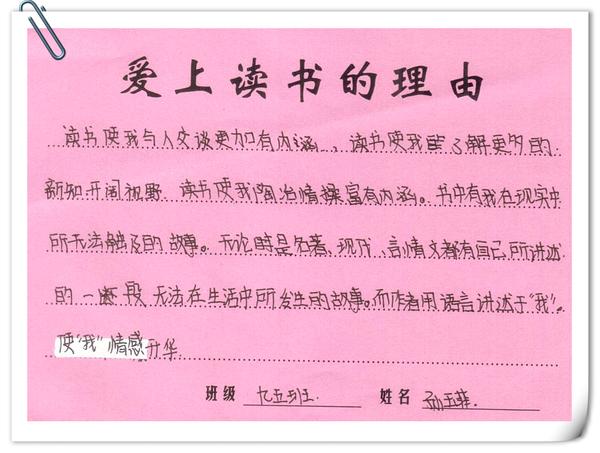 爱上读书的理由
读书使我与人交谈更加有内涵、读书使我能了解更多的
新知开阔视野 读书使我陶冶情操富有内涵。书中有我在现实中
所无法触及的故事。无论时是名著、现代、言情文都有自己所讲述
的一断段 无法在生活中所发生的故事。而作者用语言讲述于"我"。
使"我"情感升华
班级 九五班 姓名 孙玉菲